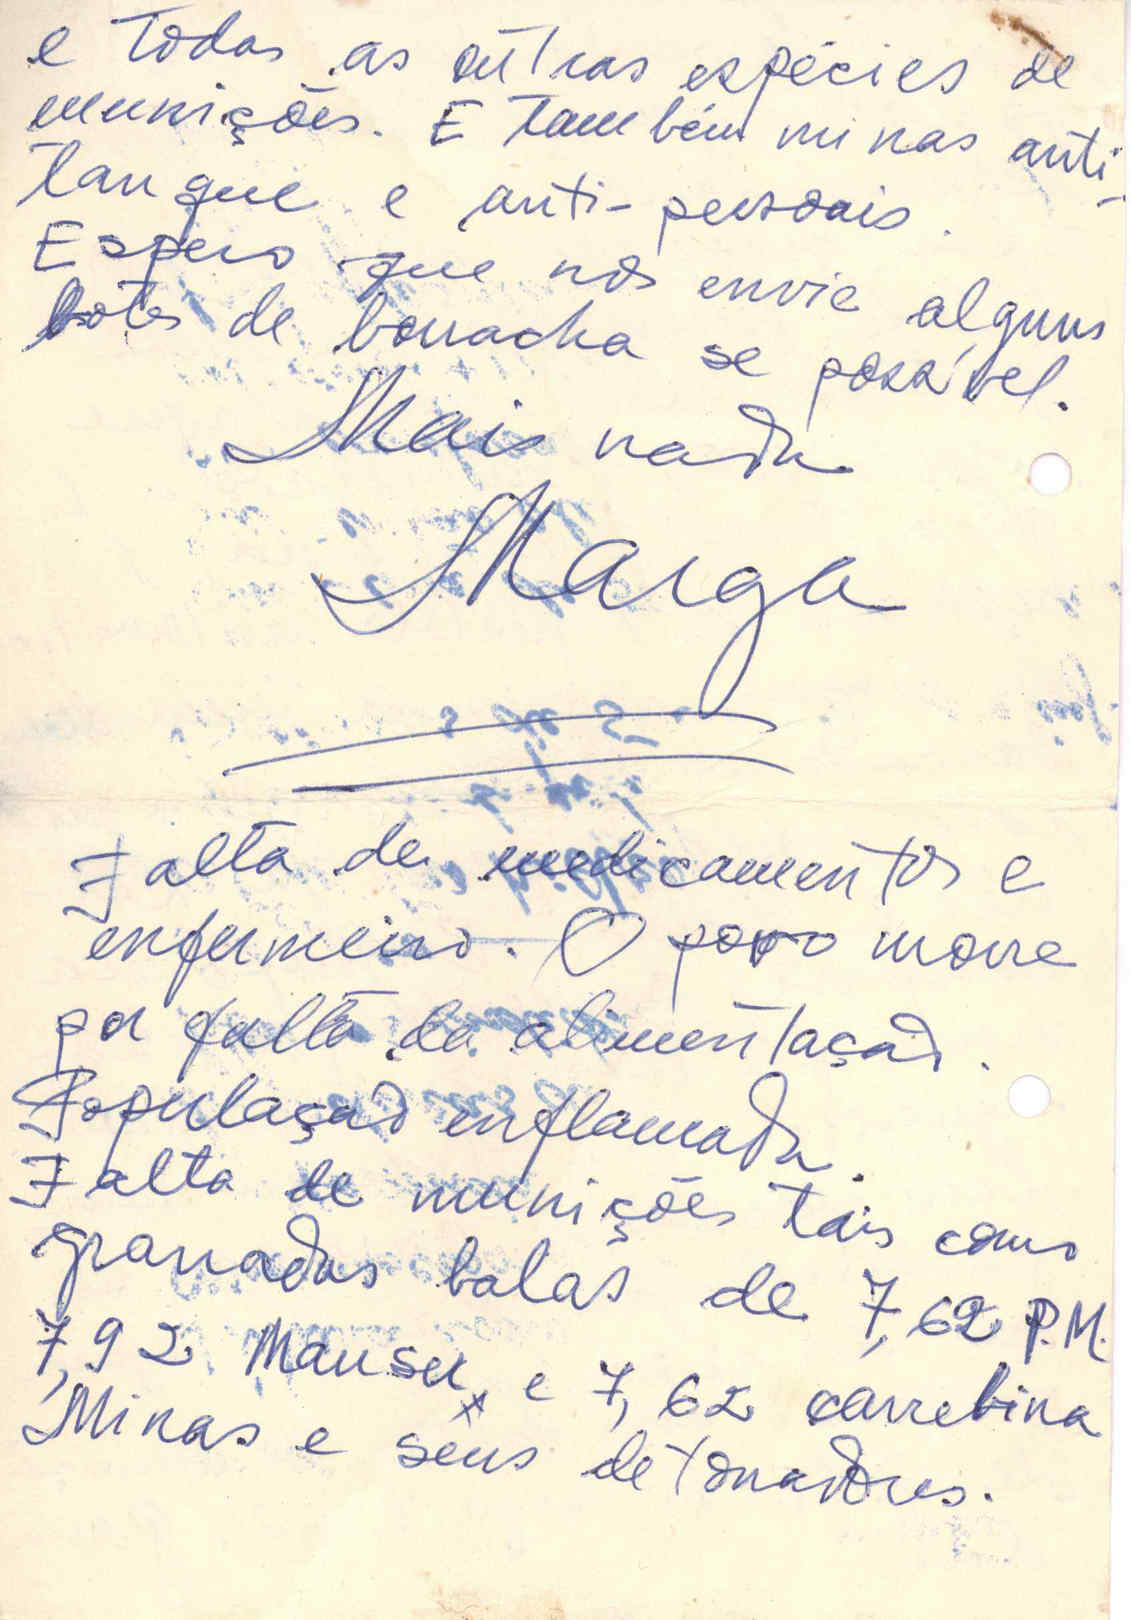 e todas as outras espécies de
munições. E também minas anti-
tanque e anti-pessoais.
Espero que nos envie alguns
botes de borracha se possível.
Mais nada
Marga
Falta de medicamentos e
enfermeiro. O povo morre
por falta da alimentação.
População enflamada.
Falta de munições tais como
granadas balas de 7,62 P.M.
7,92 Mauser e 7,62 carrebina
Minas e seus detonadores.